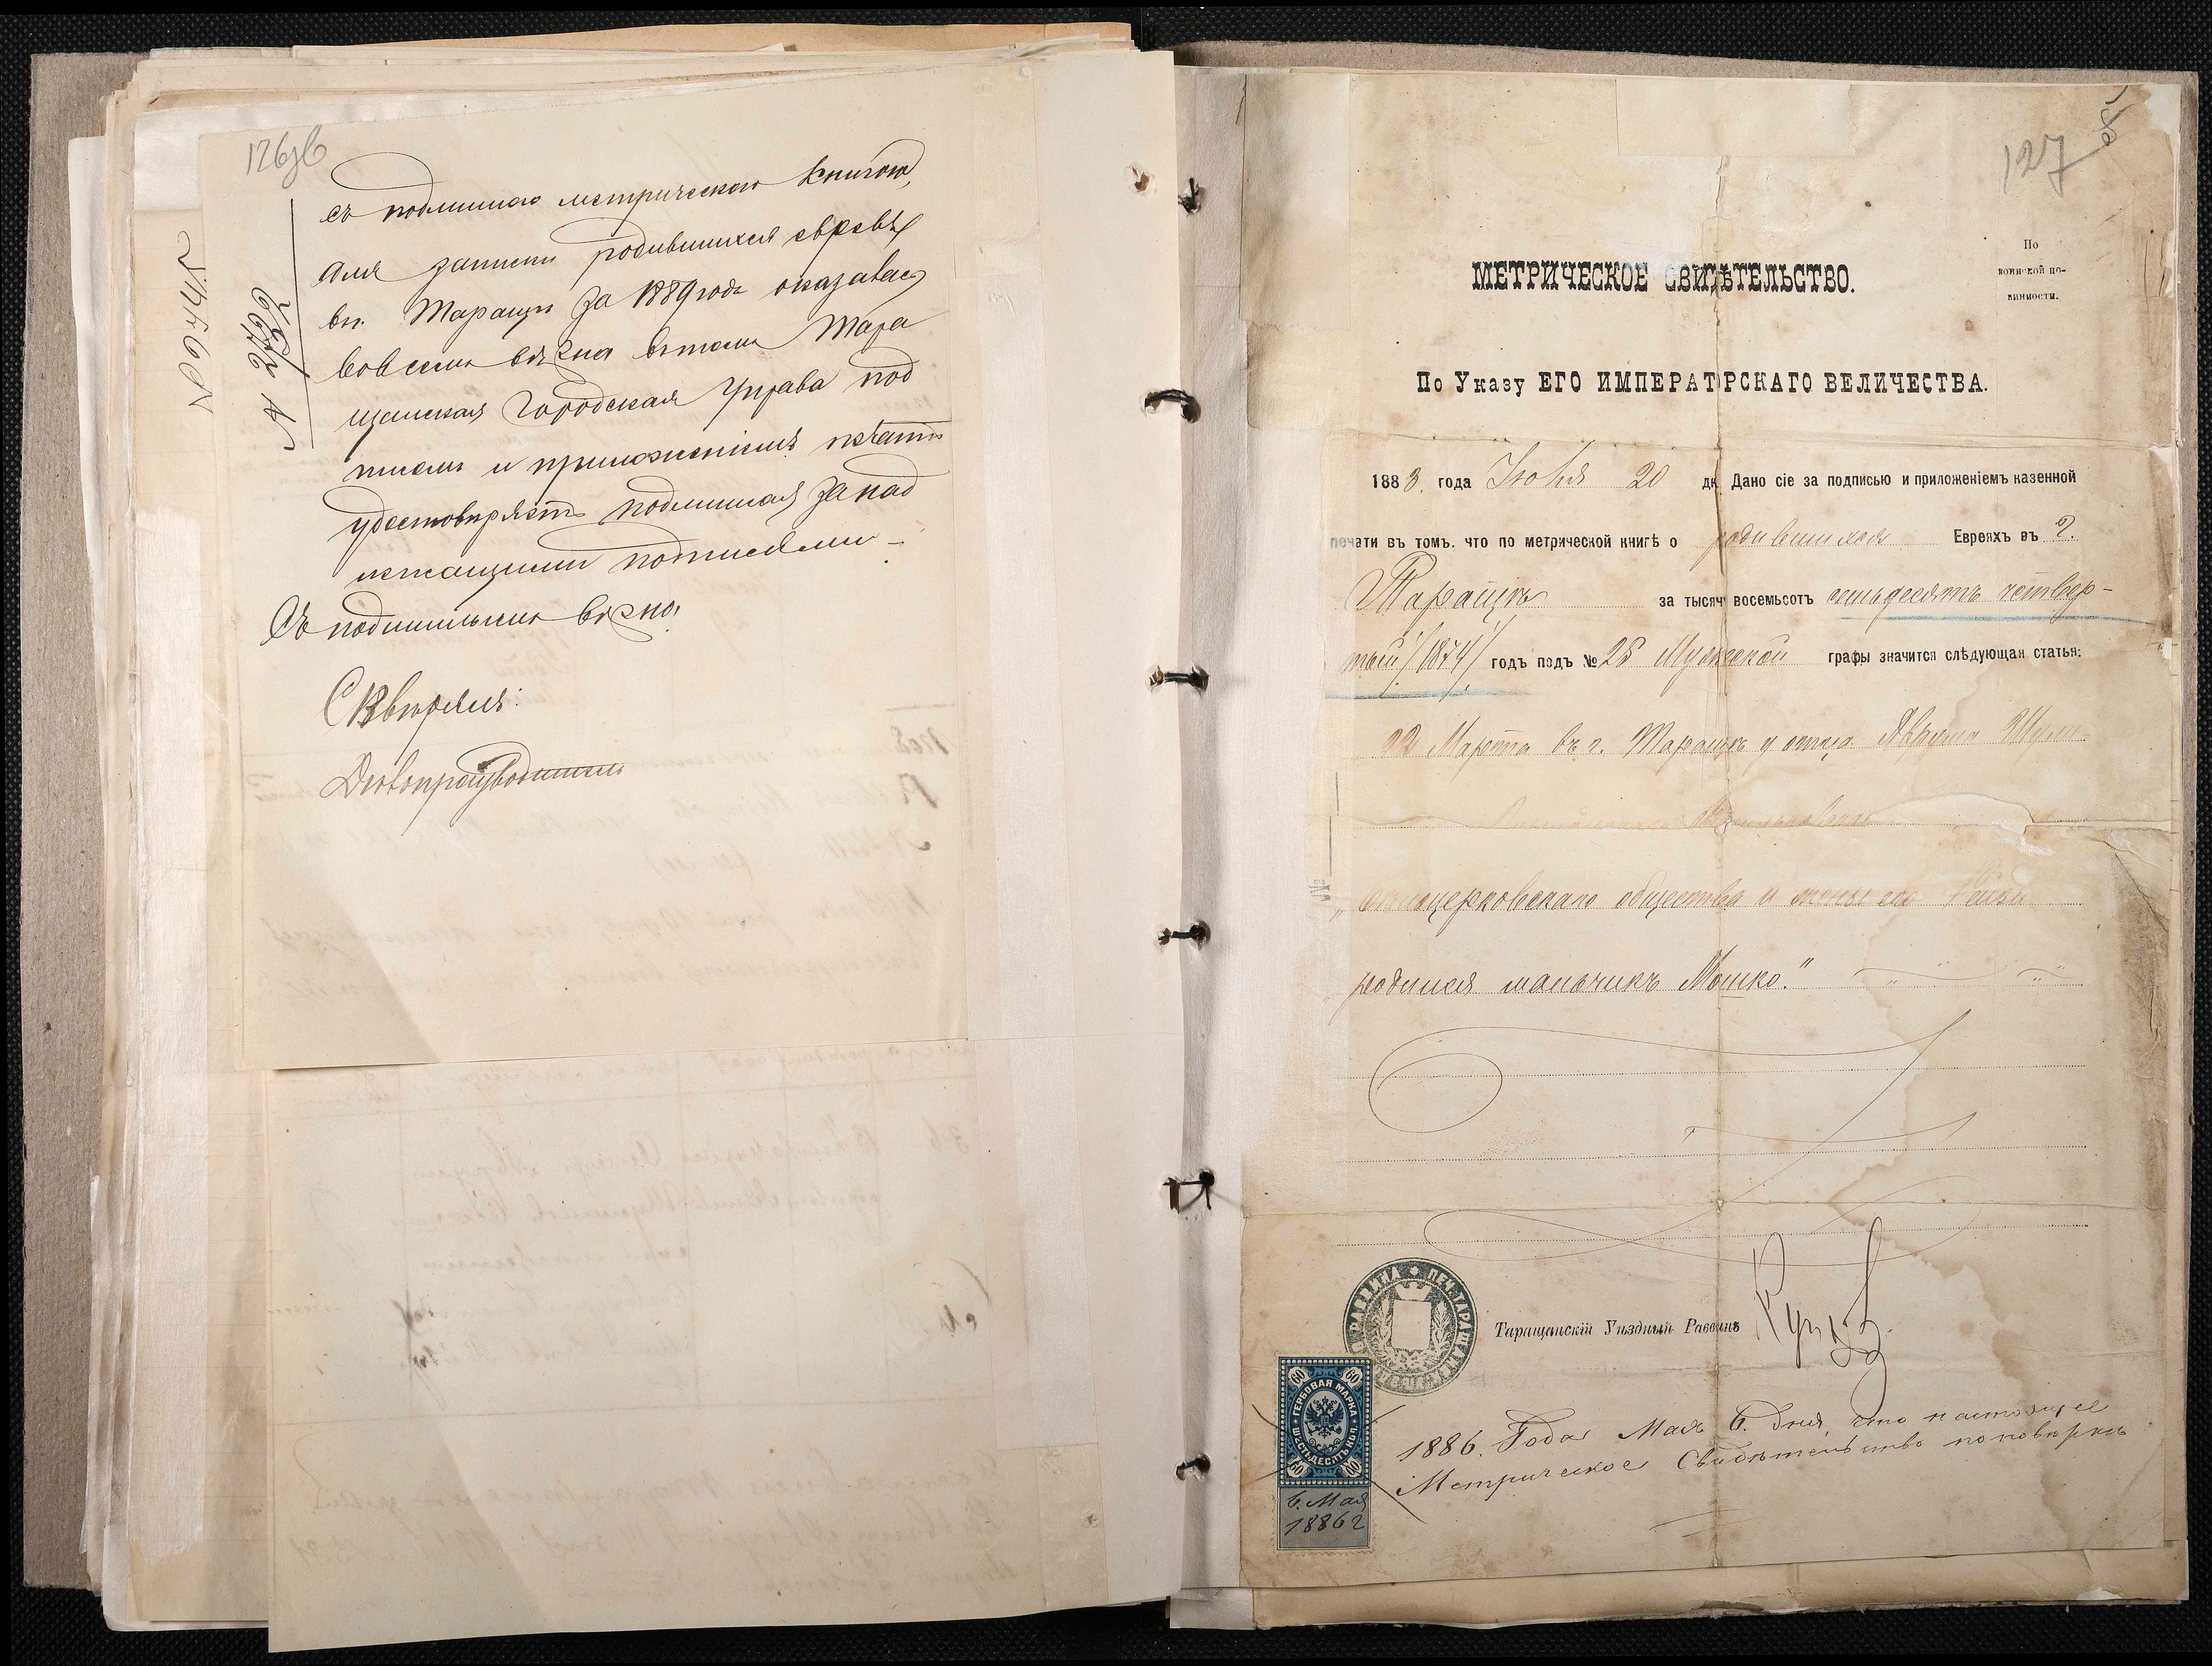 126об
съ подлинною метрическою книгою,
для записи родившихся евреевъ
въ г. Тараще за 1889 годъ оказалась
во всемъ вѣрна въ томъ Тара
щанская Городская Управа под
писью и приложеніемъ печати
удостовѣряетъ подлинная за над
лежащими подписями –
Съ подлиннымъ вѣрно:
Свѣрялъ:
Дѣлопроизводитель
127
По
воинской по-
винности.
МЕТРИЧЕСКОЕ СВИДѢТЕЛЬСТВО.
По Указу ЕГО ИМПЕРАТОРСКАГО ВЕЛИЧЕСТВА.
1883. года Іюля 20 дн Дано сіе за подписью и приложеніемъ казенной
печати въ томъ. что по метрической книгѣ о родившихся Евреяхъ въ г.
Таращѣ за тысяч восемьсотъ семьдесятъ четвер-
тый /1874/ годъ подъ № 28 Мужеской графы значится слѣдующая статья:
22 Марта въ г. Таращѣ у отца Аврума
Бѣлоцерковскаго общества и жены его
родился мальчикъ Мошко."
Таращанскій Уѣздный Раввинъ
ГЕРБОВАЯ МАРКА
ШЕСТЬДЕСЯТЪ КОП.
60 60
60 60
6. Мая
1886 г
1886. Года Мая 6. дня, что настоящее
Метрическое Свидѣтельство по повѣркѣ